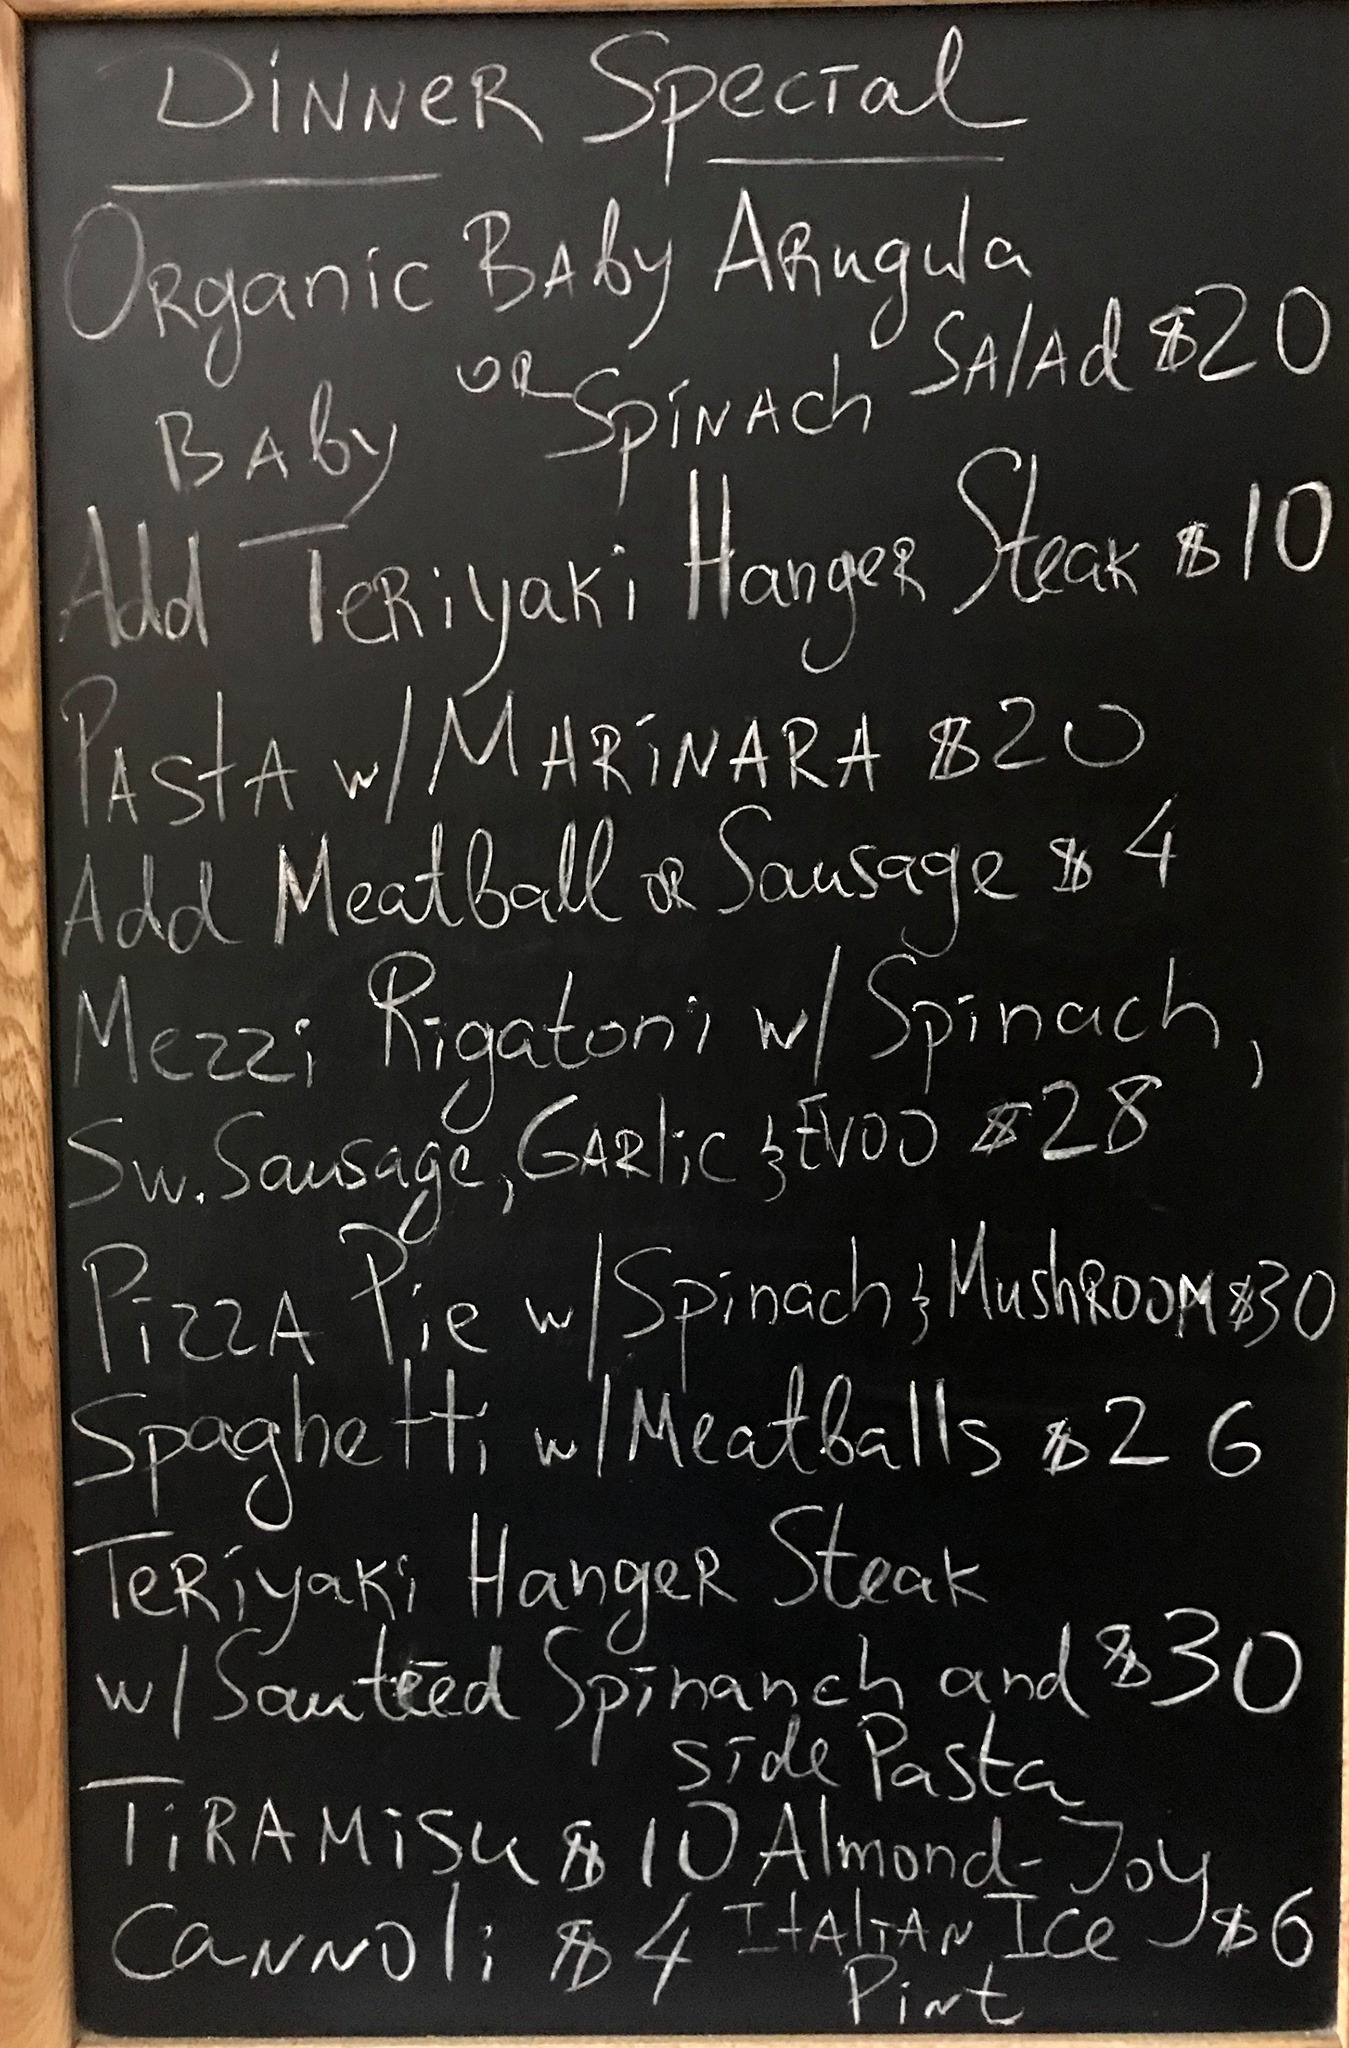 Dinner Special
Organic Baby Arugula
or Salad $20
Baby Spinach
Add Teriyaki Hanger Steak $10
Pasta w/ Marinara $20
Add Meatball or Sausage $4
Mezzi Rigatoni w/ Spinach,
Sw. Sausage, Garlic & EVOO $28
Pizza Pie w/ Spinach & Mushroom $30
Spaghetti w/ Meatballs $26
Teriyaki Hanger Steak
w/ Sauteed Spinanch and $30
side Pasta
Tiramisu $10 Almond-Joy
Cannoli $4 Italian Ice $6
Pint